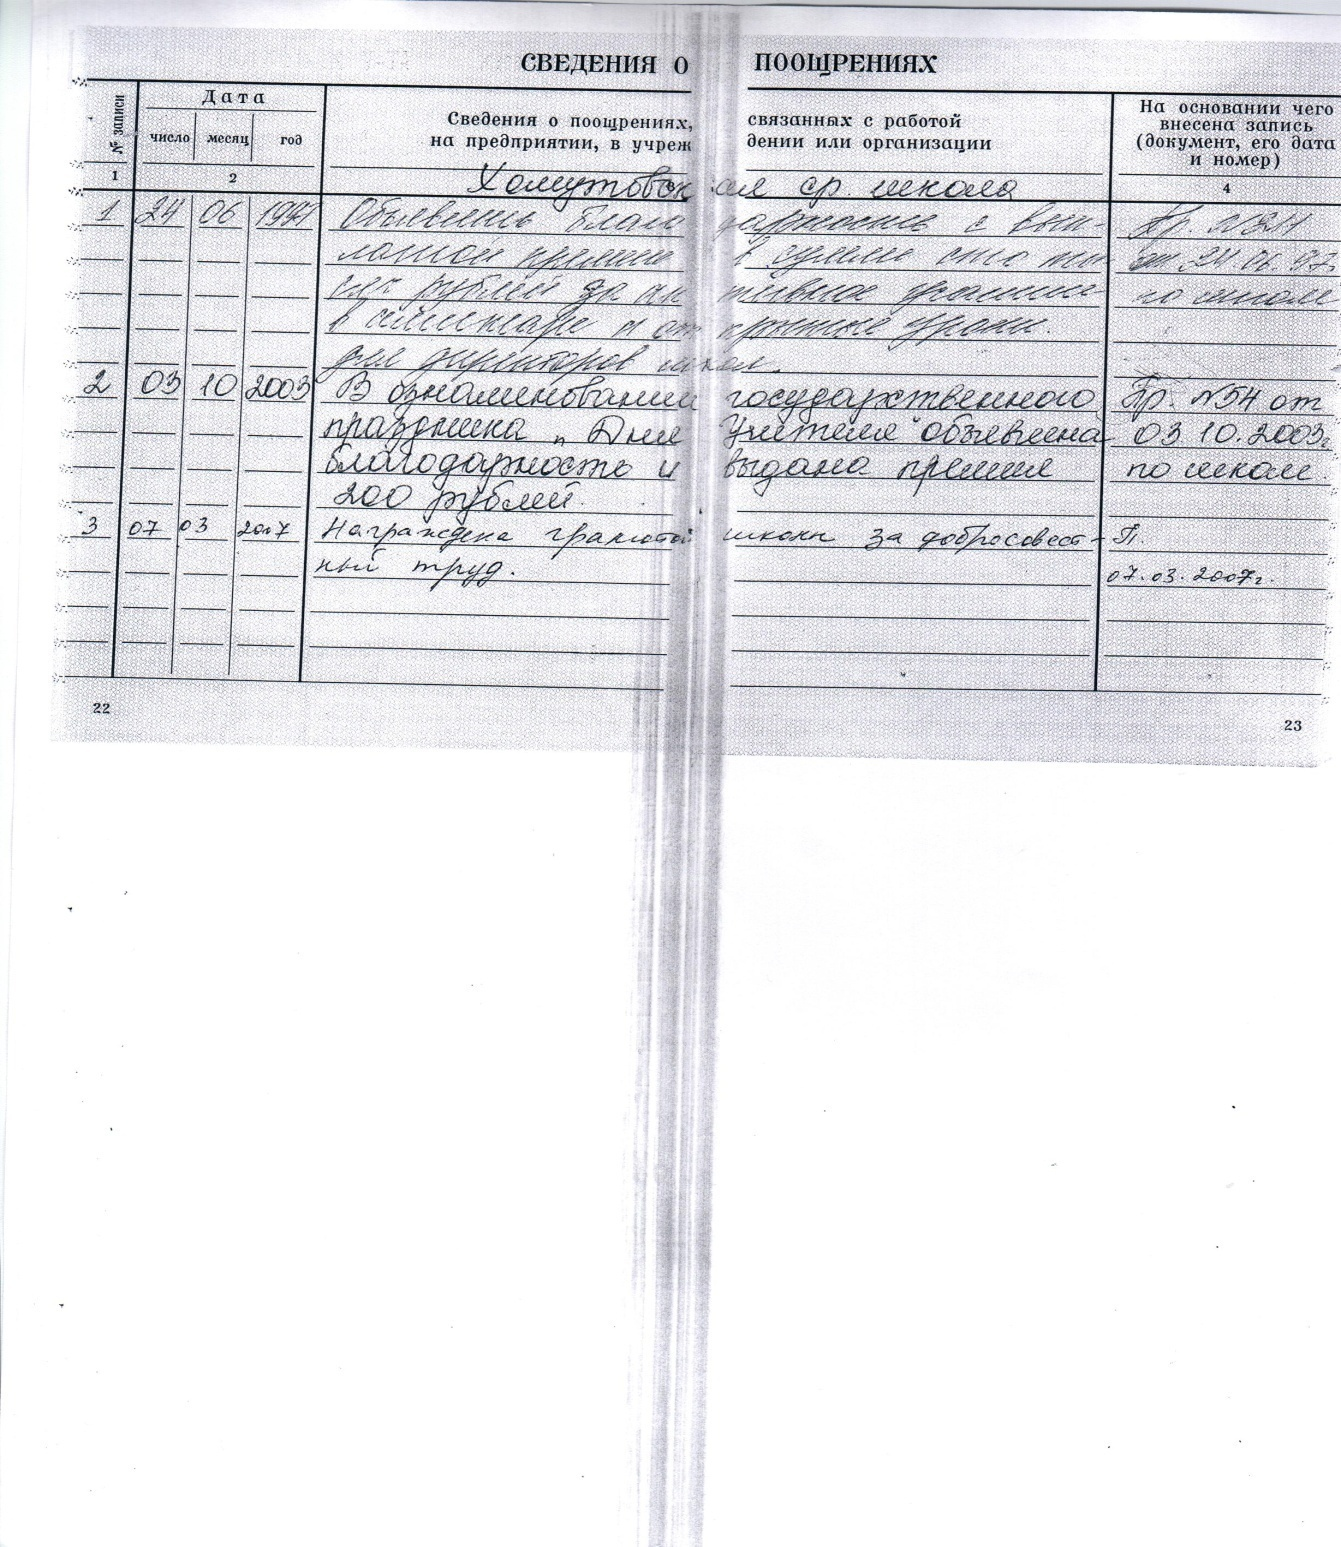 СВЕДЕНИЯ О ПООЩРЕНИЯХ
№ записи
Дата
число месяц год
Сведения о поощрениях, связанных с работой
на предприятии, в учреждении или организации
На основании чего
внесена запись
(документ, его дата
и номер)
1 2 4
Хомутовская ср. школа
1 24 06 Объявить благодарность с вып-
латой премии в сумме сто ты- от 24.06.97г
сяч рублей за активное участие по школе
в семинаре и открытые уроки
для директоров школ.
2 03 10 2003 В ознаменовании государственного Пр. №54 от
праздника „Дня Учителя" объявлена 03.10.2003г
благодарность и выдана премия по школе.
200 рублей.
3 07 03 2007 Награждена грамотой школы за добросовест- П.
ный труд. 07.03.2007г.
22
23